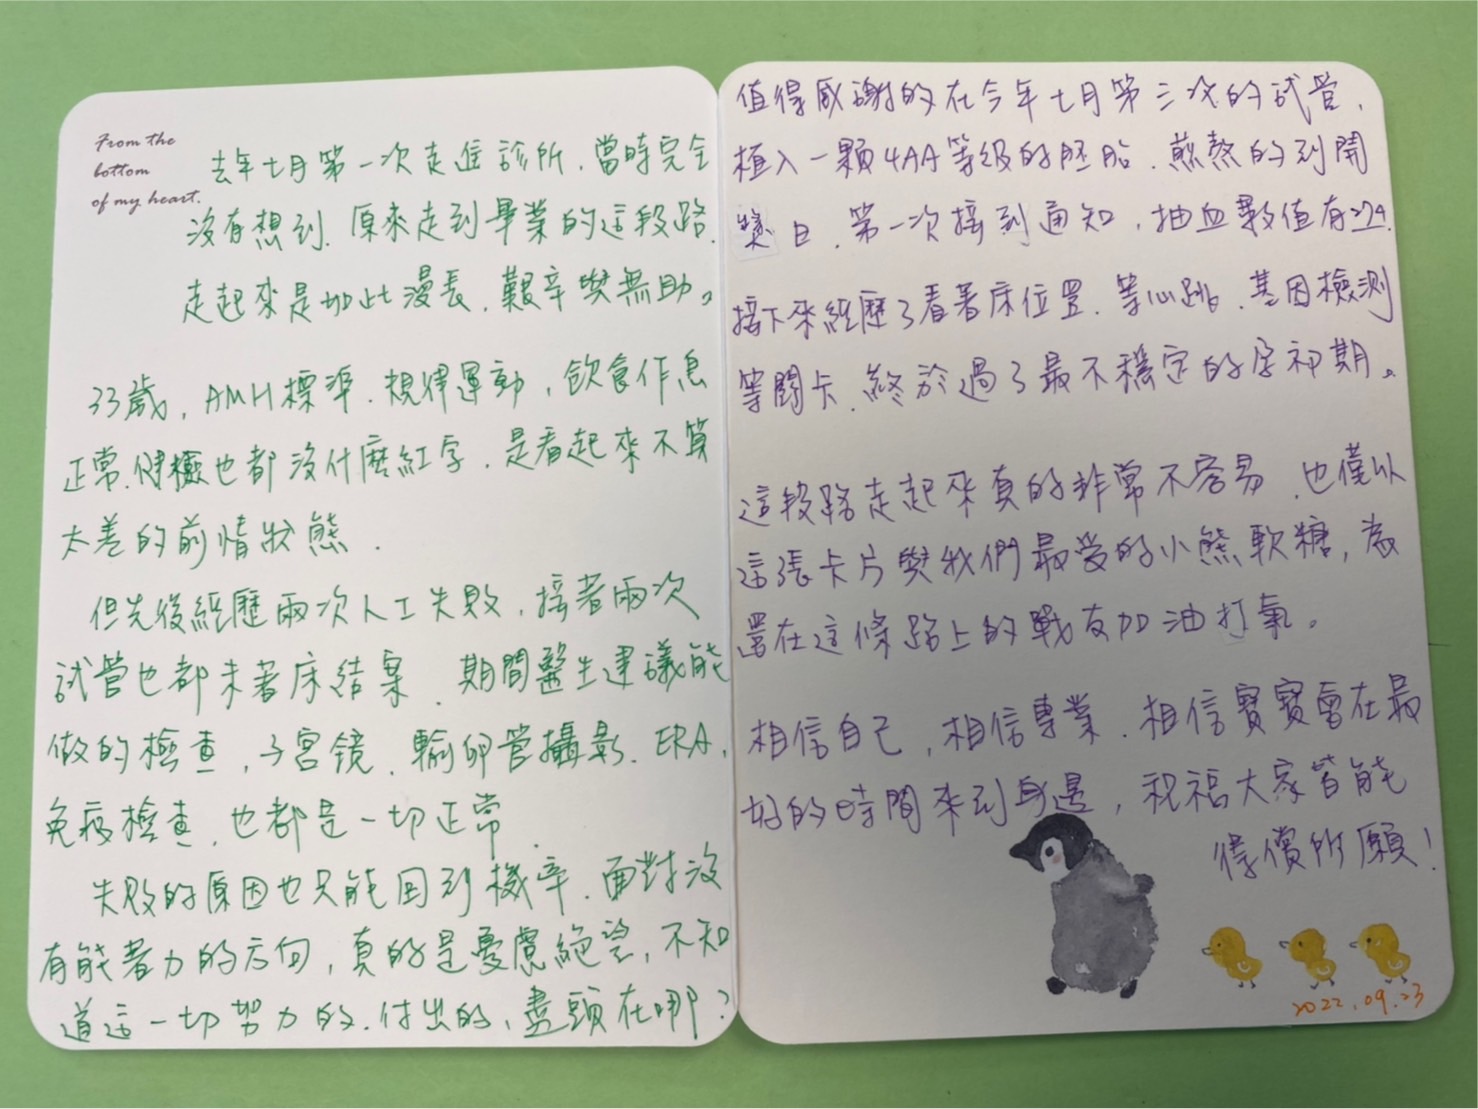 From the
bottom
of my heart.
去年七月第一次走進診所，當時完全
沒有想到，原來走到畢業的這段路，
走起來是如此漫長，艱辛與無助。
33歲，AMH標準，規律運動，飲食作息
正常，健檢也都沒什麼紅字，是看起來不算
太差的前情狀態，
但先後經歷兩次人工失敗，接著兩次
試管也都未著床結案，期間醫生建議能
做的檢查，子宮镜，輸卵管攝影，ERA，
免疫檢查，也都是一切正常，
失敗的原因也只能回到機率，面對沒
有能著力的方向，真的是憂慮絕望，不知
道這一切努力的，付出的，盡頭在哪？
值得感謝的在今年七月第三次的試管，
植入一顆4AA等級的胚胎，煎熬的到開
獎日，第一次接到通知，抽血數值有274，
接下來經歷了看著床位置，等心跳，基因檢測
等關卡，終於過了最不穩定的孕初期。
這段路走起來真的非常不容易，也僅以
這張卡片與我們最愛的小熊軟糖，為
還在這條路上的戰友加油打氣。
相信自己，相信專業，相信寶寶會在最
好的時間來到身邊，祝福大家皆能
償所願！
2022.09.23